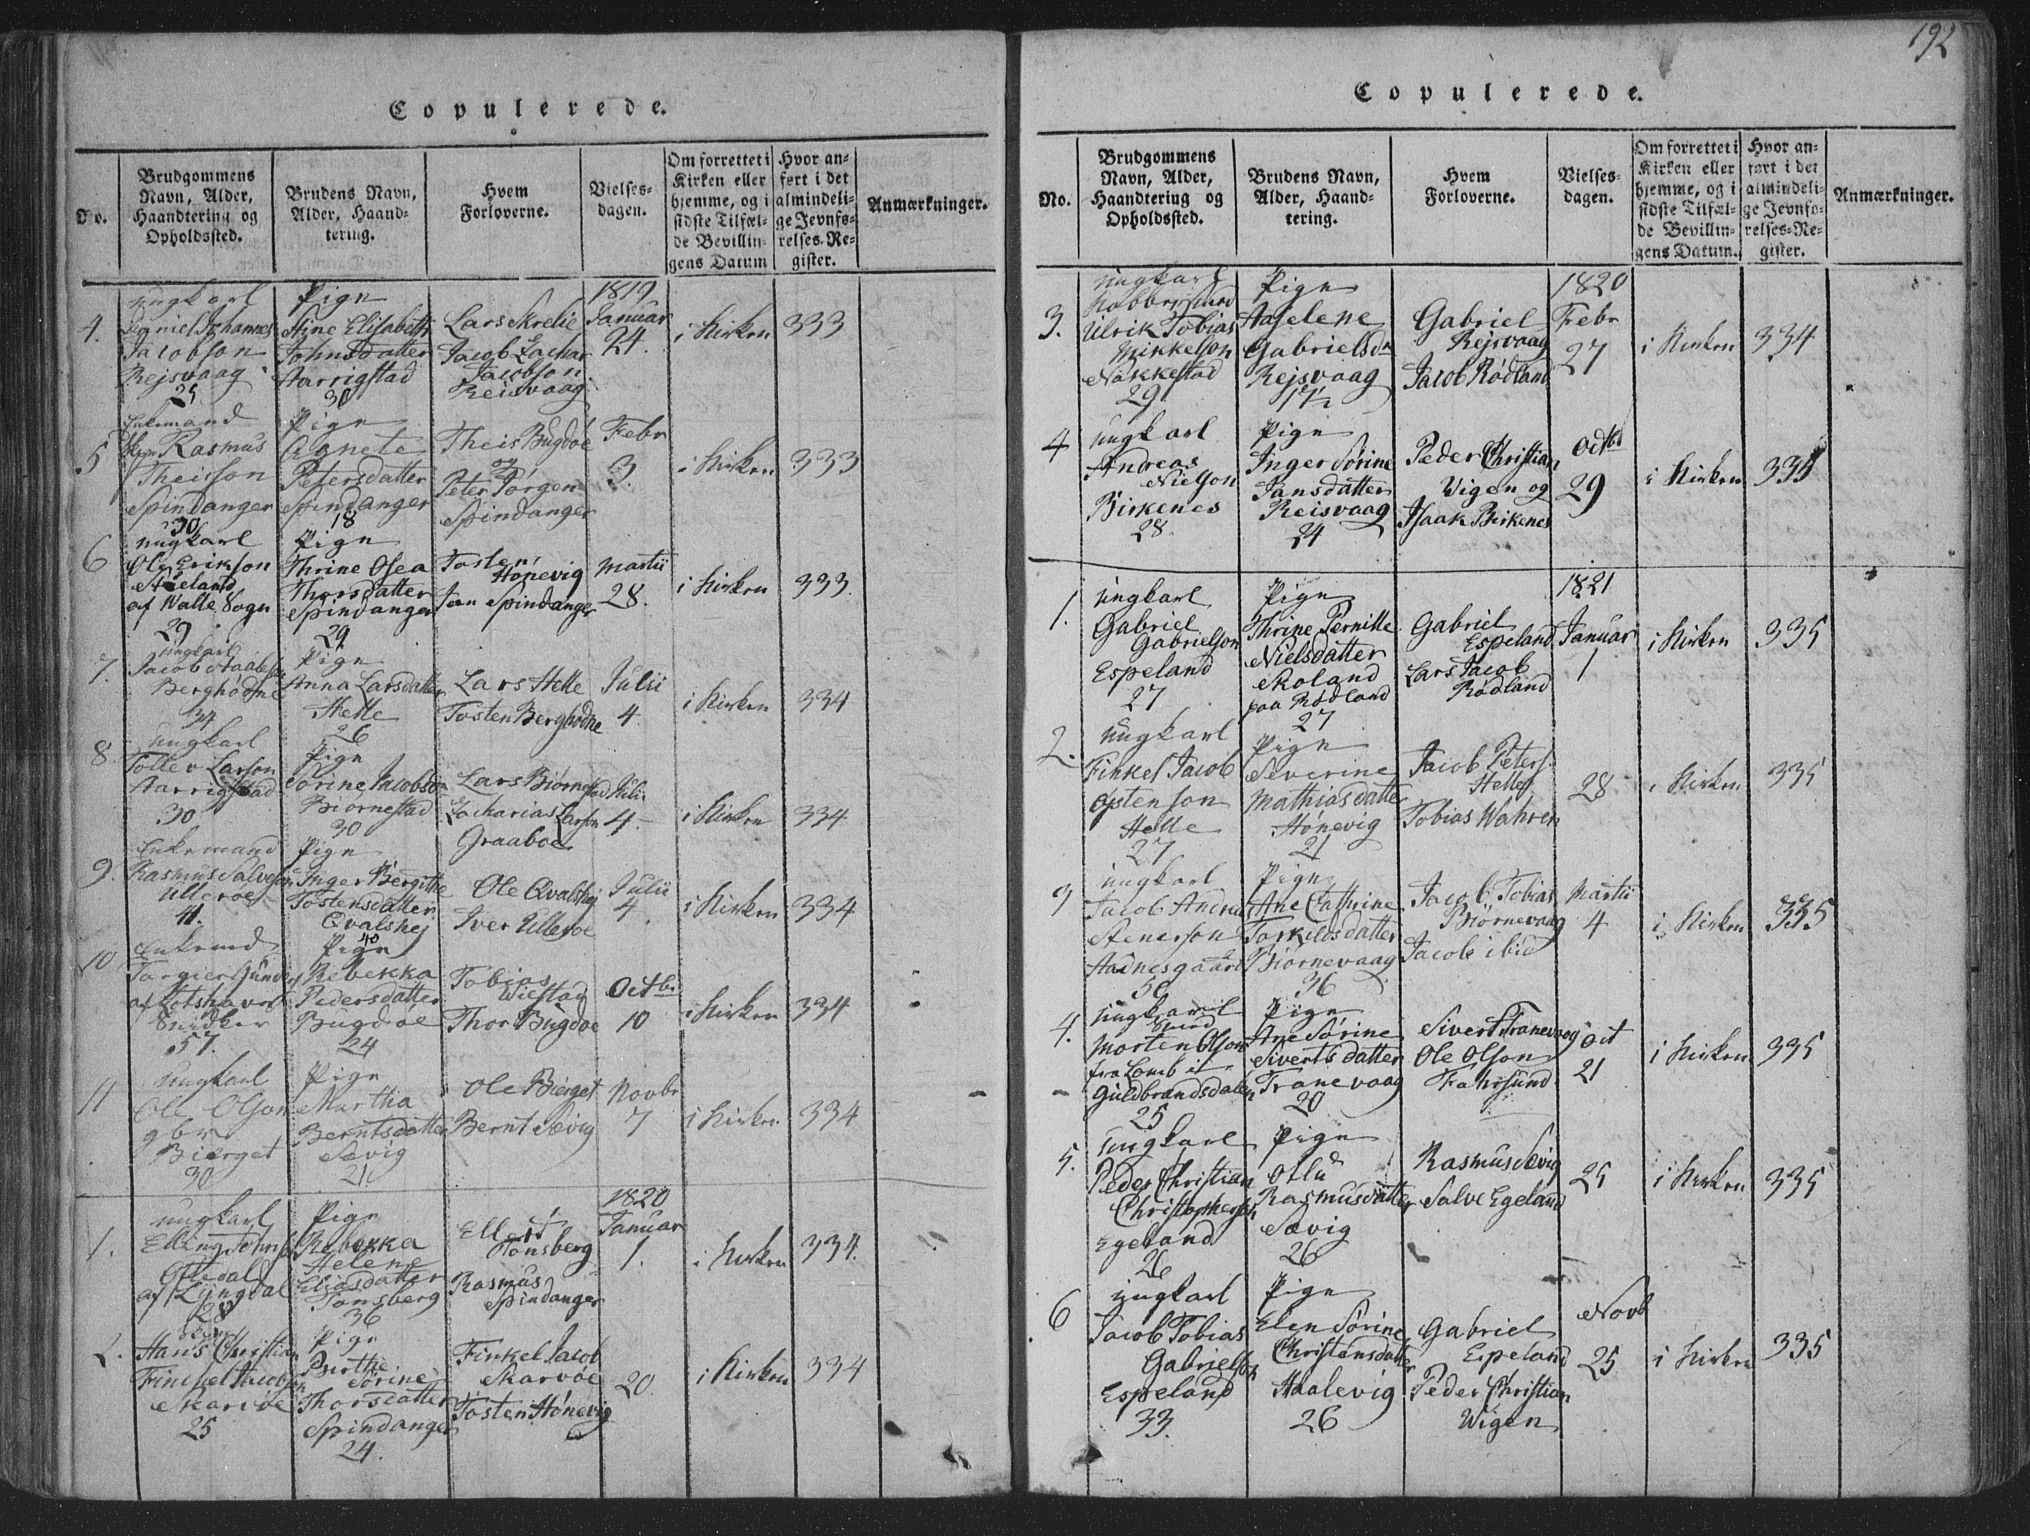 192
Copulerede.
No.
Brudgommens Navn, Alder, Haandtering og Opholdssted.
Brudens Navn, Alder, Haandtering.
Hvem Forloverne.
Vielsesdagen.
Om forrettet i Kirken eller hjemme, og i sidste Tilfælde Bevillingens Datum
Hvor anført i det almindelige Jevnførelses-Register.
Anmærkninger.
4.
ungkarl
Daniel Johannes
Jacobson
Rejsvaag
25
Pige
Stine Elisabeth
Johnsdatter
Aarrigstad
30
Lars Skrelie
Jacob Zachar
Jacobson
Reisvaag
1819
Januar
24.
i Kirken
333
5
Enkemand
Rasmus
Theisson
Spindanger
30
Pige
Agnete
Petersdatter
Spindanger
18
Theis Bugdøe
og
Peter Jørgen
Spindanger
Febr
3.
i Kirken
333
6
ungkarl
Ole Erikson
af Walle Sogn
29
Pige
Thrine Osea
Thorsdatter
Spindanger
29
Tosten
Hønevig
Jan Spindanger
Martii
28.
i Kirken
333.
7.
ungkarl
Jacob
Berghødne
34
Pige
Anna Larsdatter
Helle
26
Lars Helle
Tosten Berghødne
Julii
4.
i Kirken
334
8
ungkarl
Tollev Larson
Aarrigstad
30
Pige
Sørine Jacobsdr
Biørnestad
30
Lars Biørnestad
Zacharias Larson
Graaboe
Juli
4.
i Kirken
334
9.
Enkemand
Rasmus Salveson
Ullerøe
41.
Pige
Inger Bergithe
Tostensdatter
Qvalshej
40
Ole Qvalshej
Iver Ullerøe
Julii
4.
i Kirken
334
10
Torgier
Snidker
57.
Pige
Rebekka
Pedersdatter
Bugdøe
24
Tobias
Wiestad
Thor Bugdøe
Octbr
10
i Kirken
334
11
ungkarl
Ole Olson
gbr
Bierget
30
Pige
Martha
Berntsdatter
Sævig
21
Ole Bierget
Bernt Sævig
Novbr
7
i Kirken
334
1.
ungkarl
Elling Johnson
Oftedal
af Lyngdal
28
Pige
Rebekka
Helene
Eliasdatter
Tonsberg
36
Tønsberg
Rasmus
Spindanger
1820
Januar
1.
i Kirken
334.
2.
Hans Christian
Finchel Jacobson
Skarvøe
25
Pige
Birthe
Sørine
Thorsdatter
Spindanger
24.
Finkel Jacob
Skarvøe
Tosten Hønevig
20.
i Kirken
334
Copulerede.
No.
Brudgommens Navn, Alder, Haandtering og Opholdssted.
Brudens Navn, Alder, Haandtering.
Hvem Forloverne.
Vielsesdagen.
Om forrettet i Kirken eller hjemme, og i sidste Tilfælde Bevillingens Datum.
Hvor anført i det almindelige Jevnførelses-Register.
Anmærkninger.
3.
ungkarl
Ulrik Tobias
Mikkelson
Nakkestad
29
Pige
Aaselene
Gabrielsdr
Rejsvaag
17½
Gabriel
Rejsvaag
Jacob Rødland
1820
Febr
27
i Kirken
334
4
ungkarl
Andreas
Nielson
Birkenes
28.
Pige
Inger Sørine
Jansdatter
Reisvaag
24
Peder Christian
Wigen og
Isaak Birkenes
Octbr
29
i Kirken
335
1.
ungkarl
Gabriel
Gabrielson
Espeland
27
Pige
Thrine Pernille
Nielsdatter
Roland
paa Rødland
27
Gabriel
Espeland
Lars Jacob
Rødland
1821
Januar
1
i Kirken
335
2.
ungkarl
Finkel Jacob
Ostenson
Helle
27
Pige
Severine
Mathiasdatter
Hønevig
21
Jacob Peters
Helle
Tobias Wahren
28
i Kirken
335
3
ungkarl
Jacob Andreas
Stenerson
Aadnesgaard
Pige
Ane Cathrine
Torkildsdatter
Biørnevaag
36
Jacob Tobias
Biørnevaag
Jacob ibid
Martii
4
i Kirken
335
4.
ungkarl
Morten Olson
fra Lomb i
Guldbrandsdalen
25
Pige
Ane Sørine
Sivertsdatter
Tranevaag
20
Sivert Tranevaag
Ole Olson
Farsund
Oct
21
i Kirken
335
5.
ungkarl
Peder Christian
Christopherson
Egeland
26
Pige
Rasmusdatter
Sævig
26
Rasmus Sævig
Salve Egeland
25
i Kirken
335
6
ungkarl
Jacob Tobias
Gabrielson
Espeland
33.
Pige
Elen Sørine
Christensdatter
Haalevig
26
Gabriel
Espeland
Peder Christian
Wigen
Novb
25
i Kirken
335